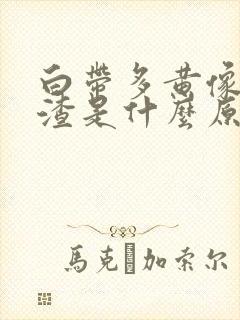 白带多黄像
渣是什麼原
馬克 加索尔